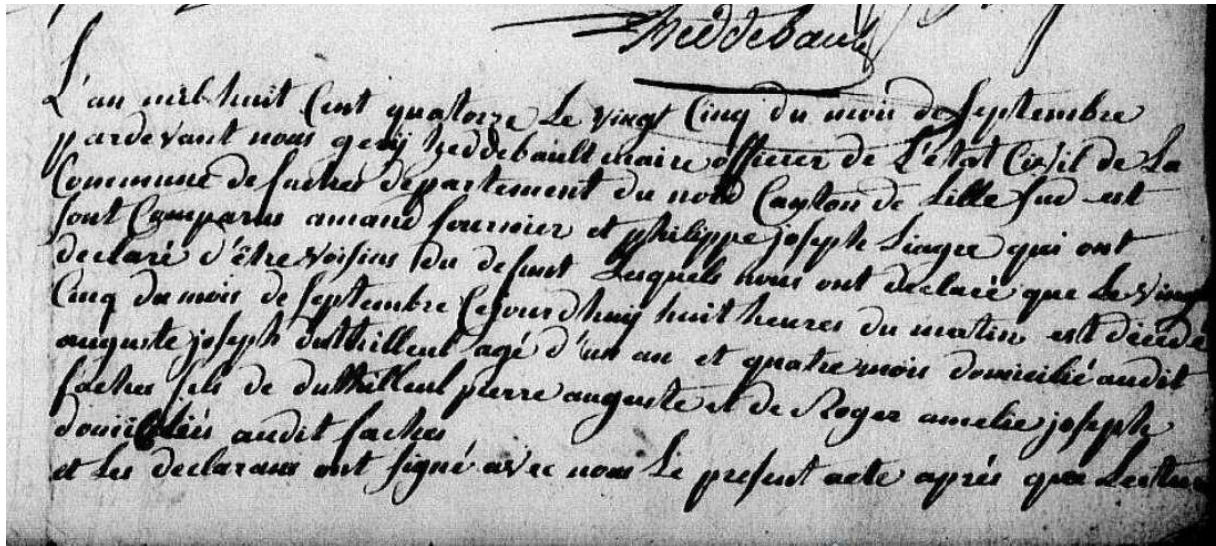 heddebault
L'an mil huit Cent quatorze Le vingt Cinq du mois de Septembre
pardevant nous gery heddebault maire officier de L'état Civil de La
Commune de faches departement du nord Canton de Lille sud est
sont Comparus amand fournier et philippe joseph Liagre qui ont
declaré d'être voisins du defunt Lesquels nous ont declaré que Le vingt
Cinq du mois de Septembre Cejourdhuy huit heures du matin est décédé
auguste joseph duthilleul agé d'un an et quatre mois domicilié audit
faches fils de duthilleul pierre auguste et de Roger amelie joseph
domiciliés audit faches
et Les declarans ont signé avec nous Le present acte aprés que Lecture